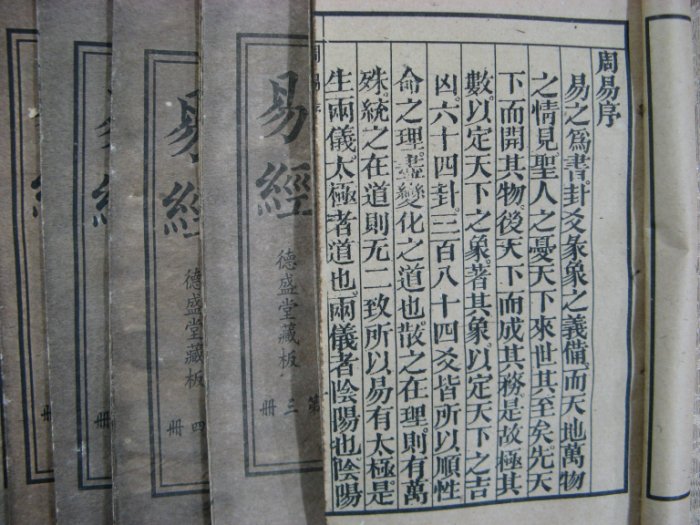 周易序
易之爲書。卦爻彖象之義備。而天地萬物
之情見。聖人之憂天下來世其至矣。先天
下而開其物。後天下而成其務。是故極其
數。以定天下之象。著其象。以定天下之吉
凶。六十四卦。三百八十四爻。皆所以順性
命之理。盡變化之道也。散之在理。則有萬
殊。統之在道。則无二致。所以易有太極。是
生兩儀。太極者道也。兩儀者陰陽也。陰陽
周易序
易經
德盛堂藏板
第三冊
易經
德盛堂藏板
四冊
易經
冊
經
冊